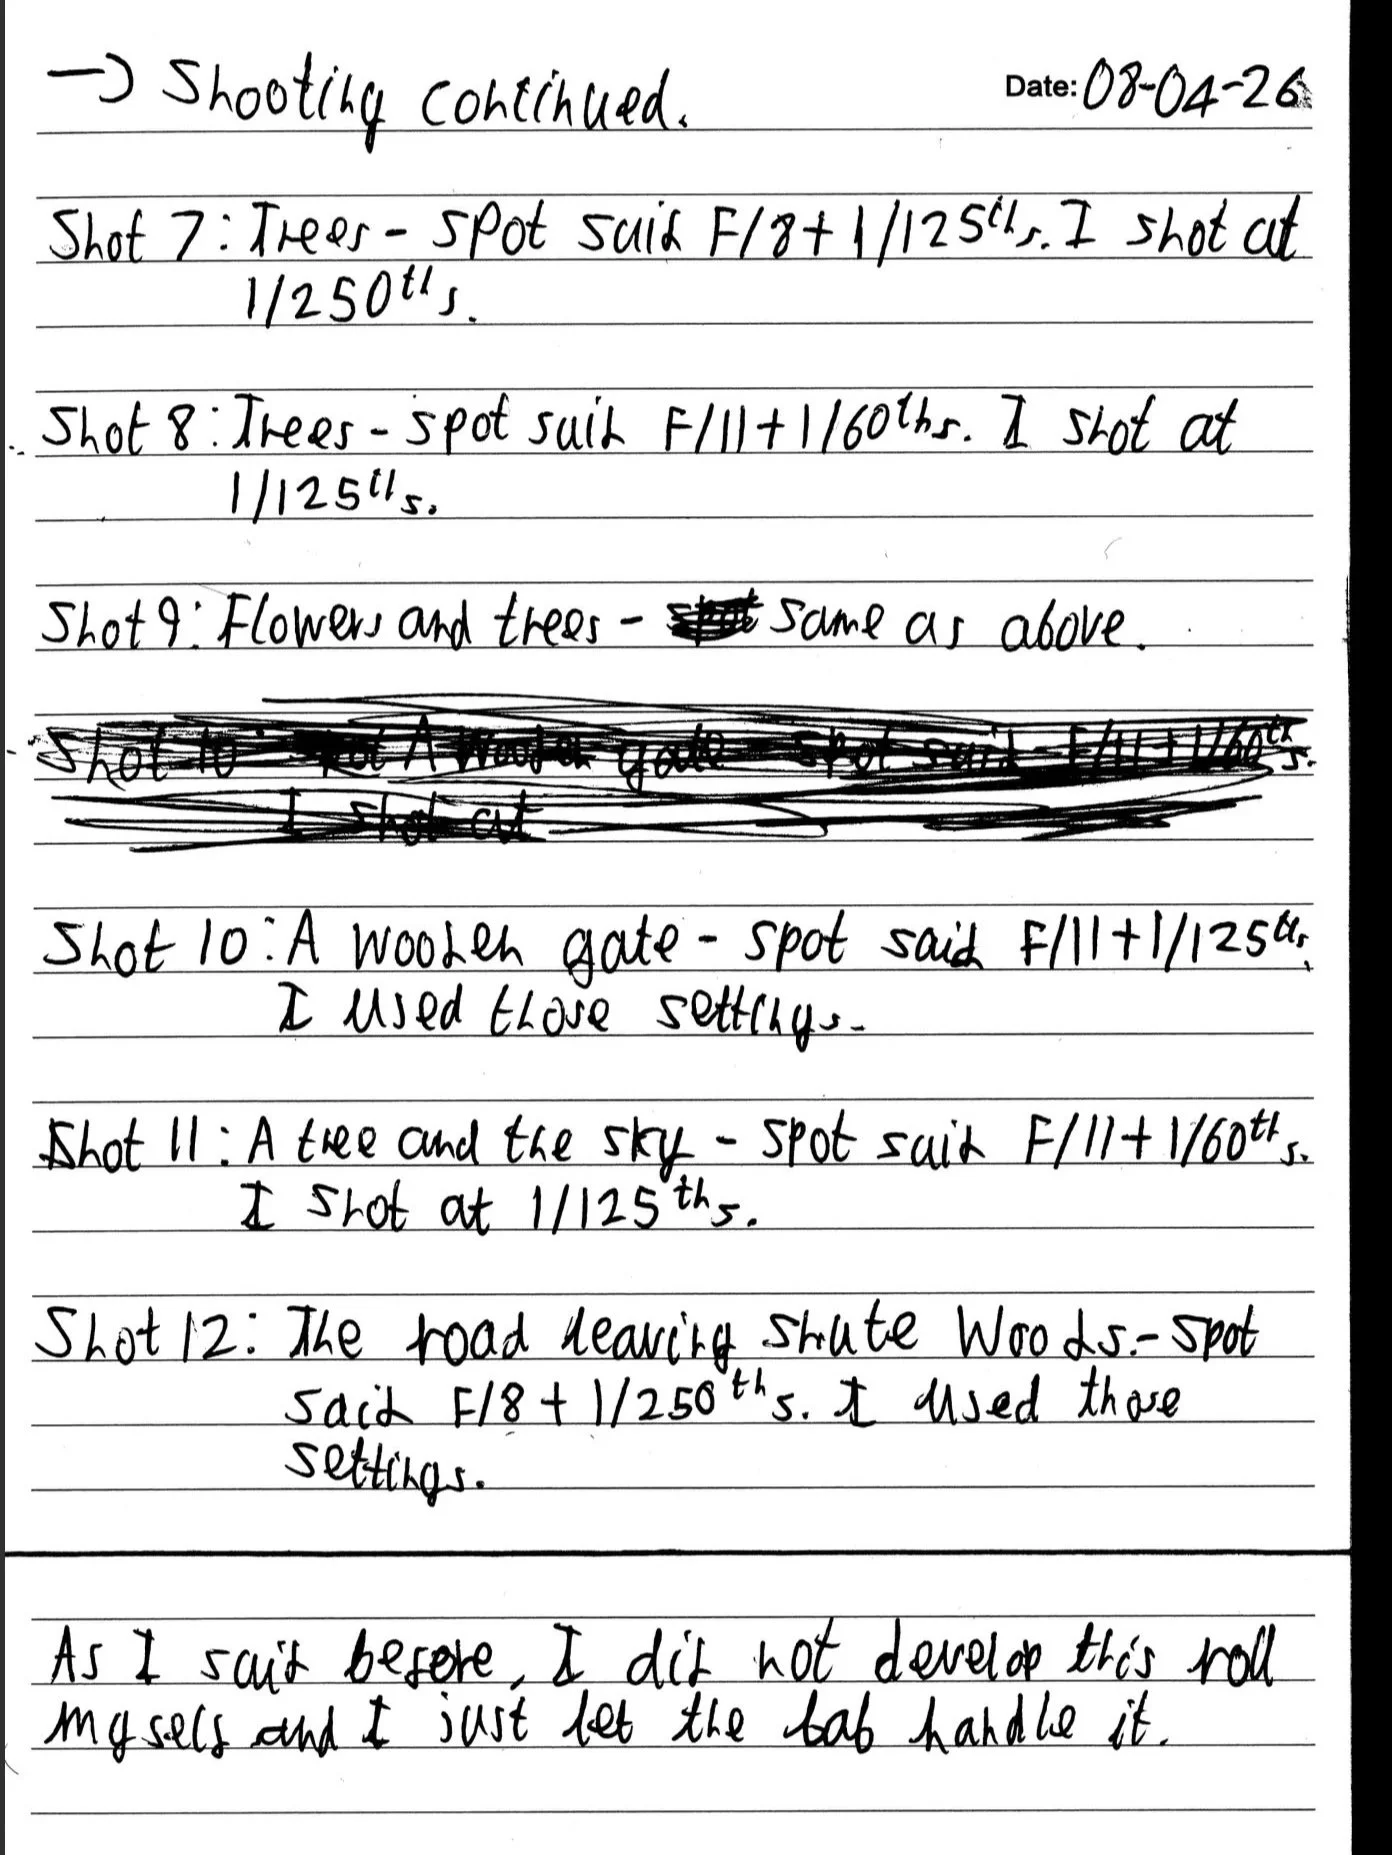 → Shooting continued.
Date: 08-04-26
Shot 7: Trees - spot said F/8 + 1/125ths. I shot at
1/250ths.
Shot 8: Trees - spot said F/11 + 1/60ths. I shot at
1/125ths.
Shot 9: Flowers and trees - spot same as above.
Shot 10 A wooden gate spot said F/11 + 1/60ths.
I shot at
Shot 10: A wooden gate - spot said F/11 + 1/125ths.
I used those settings.
Shot 11: A tree and the sky - spot said F/11 + 1/60ths.
I shot at 1/125ths.
Shot 12: The road leaving Shute Woods. - spot
said F/8 + 1/250ths. I used those
settings.
As I said before, I did not develop this roll
myself and I just let the lab handle it.